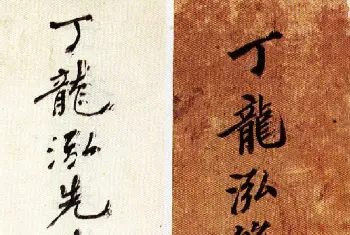 丁龍泓先
丁龍泓